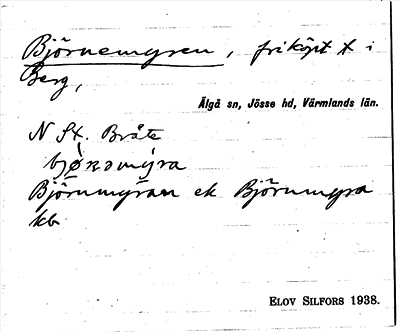 Björnemyren, friköpt x i
Berg,
Älgå sn, Jösse hd, Värmlands län.
N St. Bråte
bjø̀ꞃəmýra
Björnmyran ek Björnmyra
kb
ELOV SILFORS 1938.